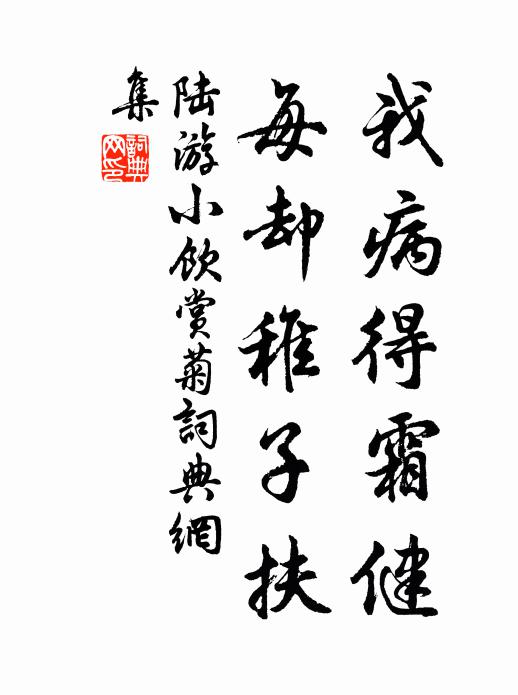 我病得霜健
每却稚子扶
陆游小饮赏菊詞典網
集
詞典网印